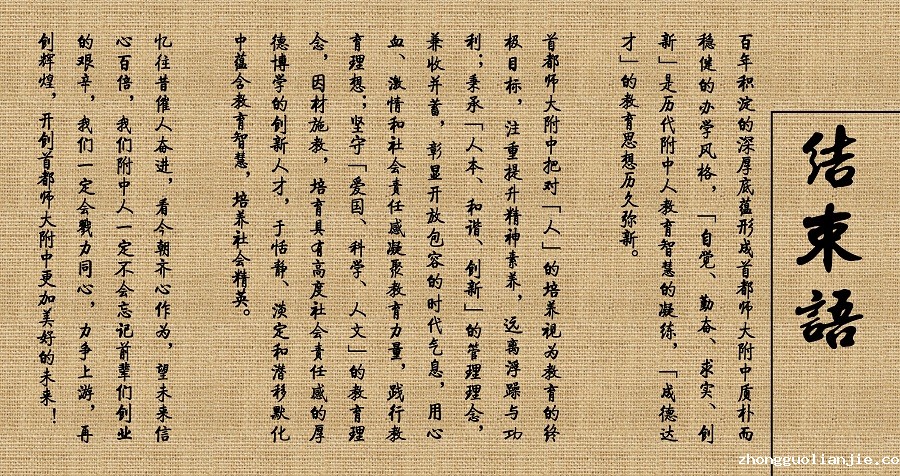 结束語
百年积淀的深厚底蕴形成首都师大附中质朴而
稳健的办学风格，「自觉、勤奋、求实、创
新」是历代附中人教育智慧的凝练，「成德达
才」的教育思想历久弥新。
首都师大附中把对「人」的培养视为教育的终
极目标，注重提升精神素养，远离浮躁与功
利；秉承「人本、和谐、创新」的管理理念，
兼收并蓄，彰显开放包容的时代气息，用心
血、激情和社会责任感凝聚教育力量，践行教
育理想；坚守「爱国、科学、人文」的教育理
念，因材施教，培育具有高度社会责任感的厚
德博学的创新人才，于恬静、淡定和潜移默化
中蕴含教育智慧，培养社会精英。
忆往昔催人奋进，看今朝齐心作为，望未来信
心百倍，我们附中人一定不会忘记前辈们创业
的艰辛，我们一定会戮力同心，力争上游，再
创辉煌，开创首都师大附中更加美好的未来！
zhongguolianjie.co